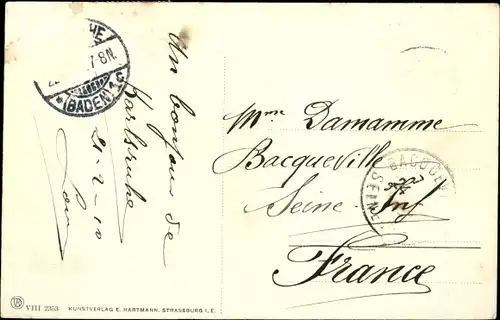 Un bonjour de
Karlsruhe
21-2-10
Mme Damamme
Bacqueville
Seine Inf
France
(BADEN)
BACQUE
SEINE
VIII 2353 KUNSTVERLAG E. HARTMANN. STRASSBURG I. E.